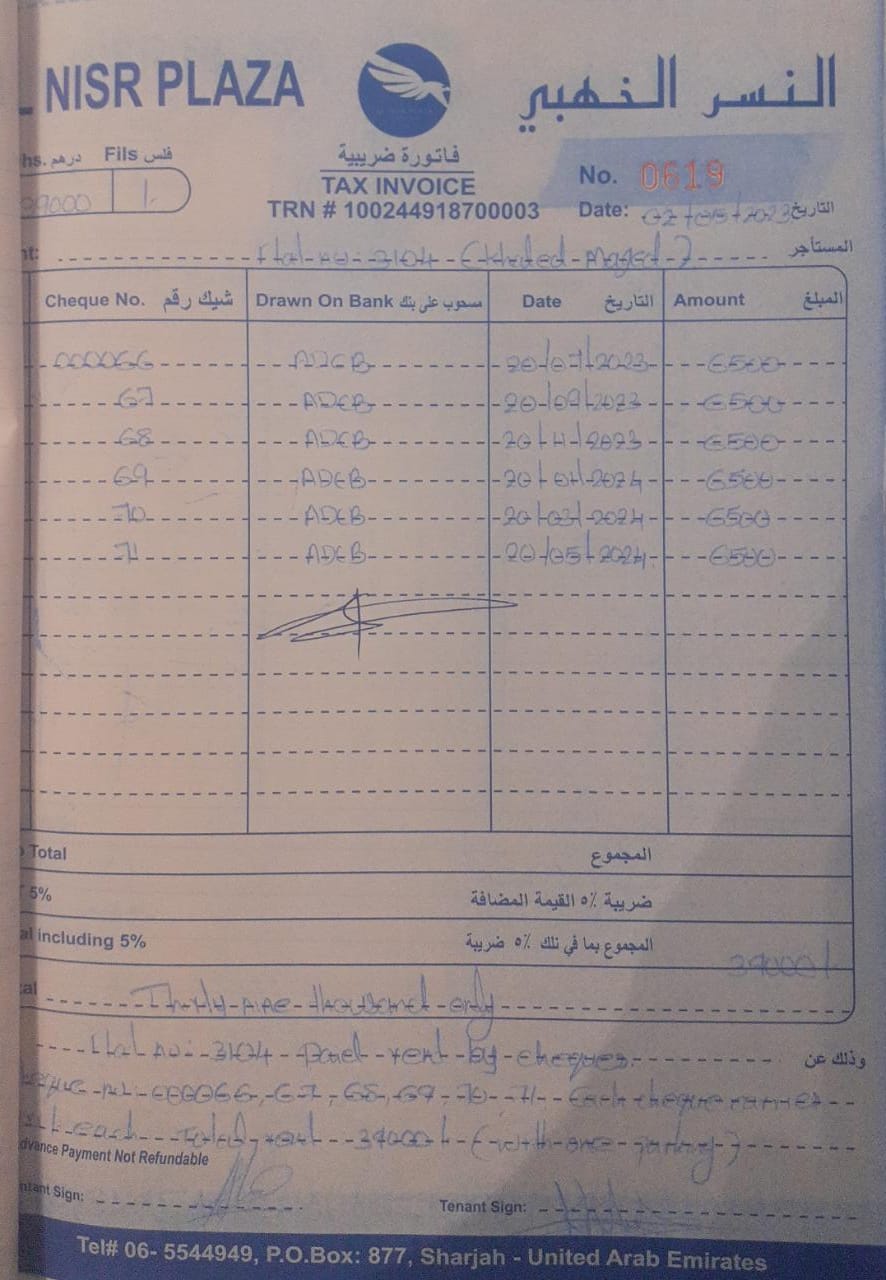 NISR PLAZA
النسر الذهبي
hs. درهم Fils فلس
39000 /.
فاتورة ضريبية
TAX INVOICE
TRN # 100244918700003
No. 0619
Date: 02/05/2023 التاريخ
nt: Flat no 3104 (Khaled Maged) المستأجر
Cheque No. شيك رقم Drawn On Bank مسحوب على بنك Date التاريخ Amount المبلغ
000066 ADCB 20/07/2023 6500
67 ADCB 20/09/2023 6500
68 ADCB 20/11/2023 6500
69 ADCB 20/01/2024 6500
70 ADCB 20/03/2024 6500
71 ADCB 20/05/2024 6500
Total المجموع
5% ضريبة ٥٪ القيمة المضافة
al including 5% المجموع بما في ذلك ٥٪ ضريبة
39000/.
al Thirty nine thousand only
Flat no: 3104 rent by cheques. وذلك عن
eque no 000066, 67, 68, 69 70 71 Each cheque carries
each Total rent 39000/- (with one parking)
dvance Payment Not Refundable
ntant Sign: Tenant Sign:
Tel# 06- 5544949, P.O.Box: 877, Sharjah - United Arab Emirates